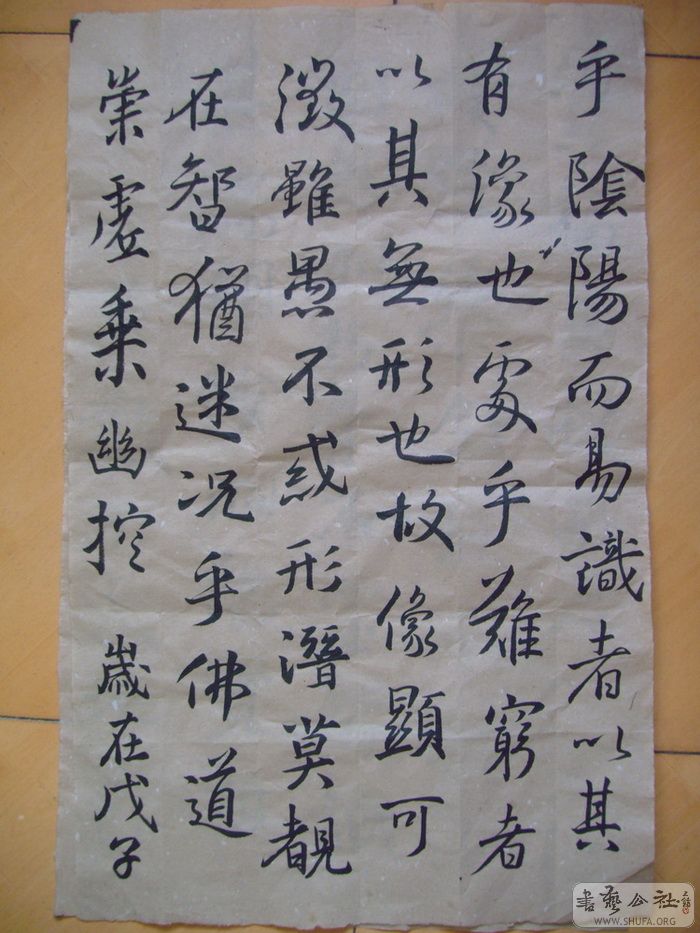 乎陰陽而易識者以其
有像也處乎難窮者
以其無形也故像顯可
徵雖愚不惑形潛莫覩
在智猶迷况乎佛道
崇虛乗幽控
歲在戊子
書藝公社
WWW.SHUFA.ORG